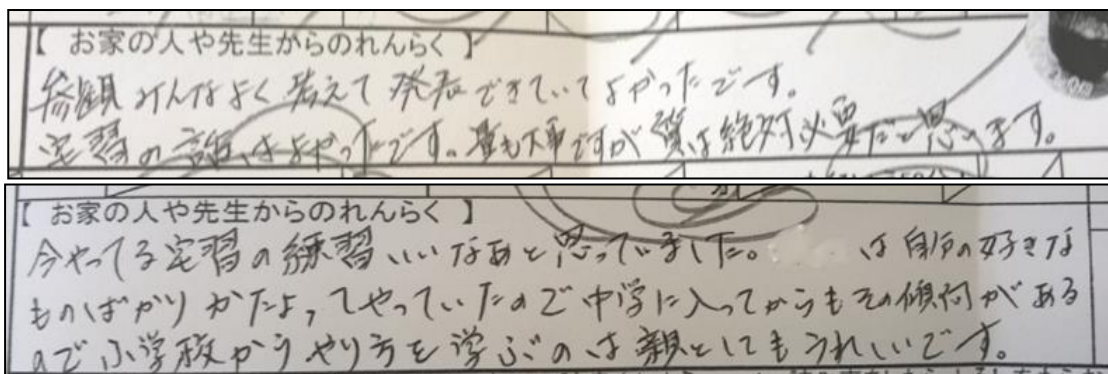 【 お家の人や先生からのれんらく 】
参観みんなよく考えて発表できていてよかったです。
宅習の話はよかったです。量も大事ですが質は絶対必要だと思います。
【 お家の人や先生からのれんらく 】
今やってる宅習の練習いいなあと思っていました。 は自分の好きな
ものばかりかたよってやっていたので中学に入ってからもその傾向がある
ので小学校からやり方を学ぶのは親としてもうれしいです。